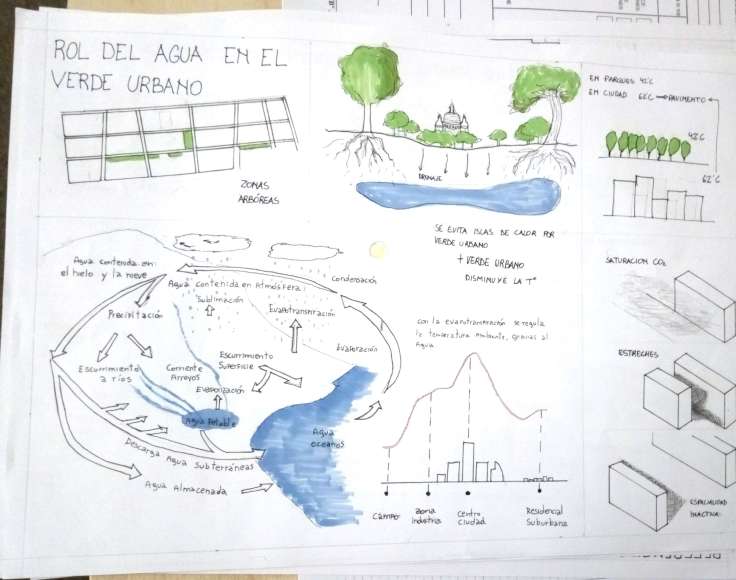 ROL DEL AGUA EN EL
VERDE URBANO
ZONAS
ARBÓREAS
DRENAJE
EN PARQUES 42°C
EN CIUDAD 62°C → PAVIMENTO
42°C
62°C
SE EVITA ISLAS DE CALOR POR
VERDE URBANO
+ VERDE URBANO
DISMINUYE LA T°
Agua contenida en
el hielo y la nieve
Agua contenida en Atmósfera
Condensación
Sublimación
Evapotranspiración
Precivitación
Evaporación
Escurrimiento
a ríos
Corriente
Arroyos
Escurrimiento
Superficie
Evaporización
Agua Potable
Agua
oceanos
Descarga Agua Subterráneas
Agua Almacenada
con la evapotranspiración se regula
la temperatura ambiente, gracias al
Agua
Campo
Zona
Industria
Centro
Ciudad
Residencial
Suburbana
SATURACION CO₂
ESTRECHES
ESPACIALIDAD
INACTIVA